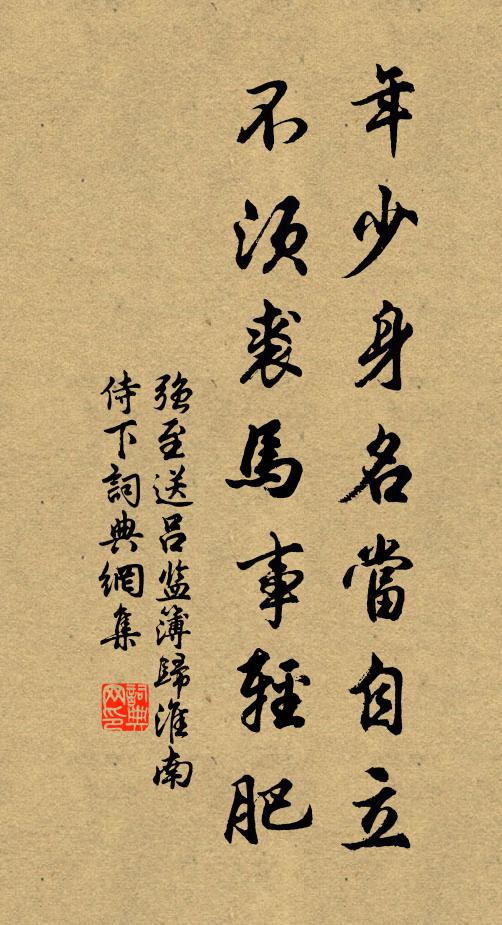 年少身名當自立
不須裘馬事輕肥
強至送吕监簿歸淮南
侍下詞典網集
詞典
网印